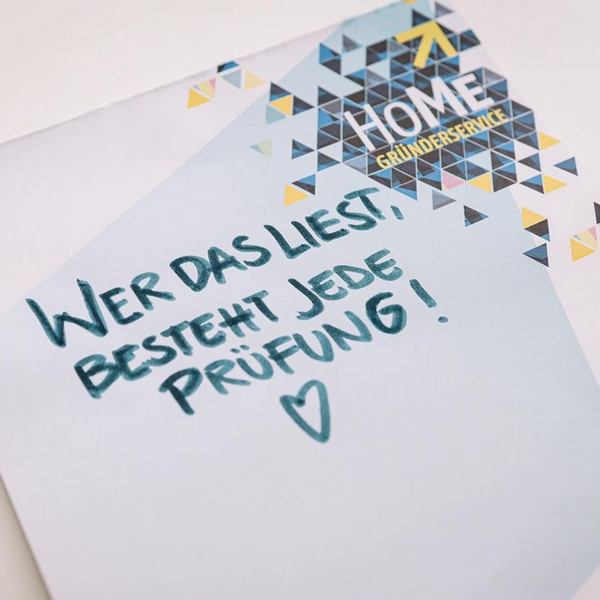 HOME
GRÜNDERSERVICE
WER DAS LIEST,
BESTEHT JEDE
PRÜFUNG!